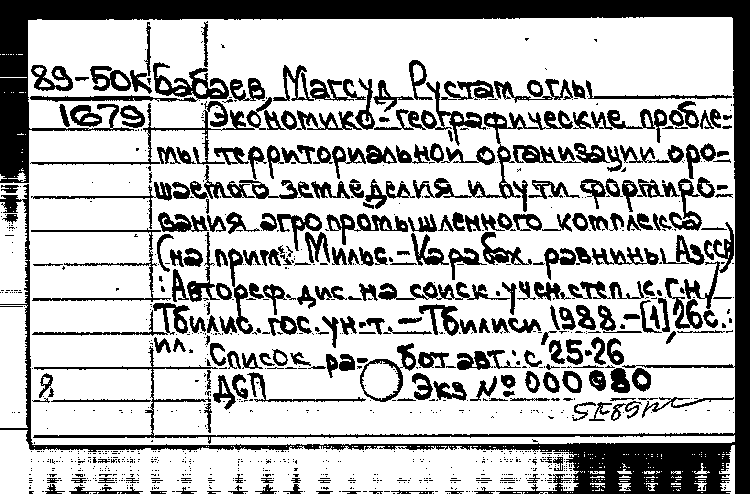 89-50К Бабаев Магсуд Рустам оглы
1679 Экономико-географические пробле-
мы территориальной организации оро-
шаемого земледелия и пути формиро-
вания агропромышленного комплекса
(на прим. Мильс.-Карабах. равнины АзССР)
: Автореф. дис. на соиск. учен. степ. к.г.н /
Тбилис. гос. ун-т. — Тбилиси, 1988. - [1] 26 с. :
ил. Список ра- бот авт.: с. 25-26
8 ДСП Экз № 000980